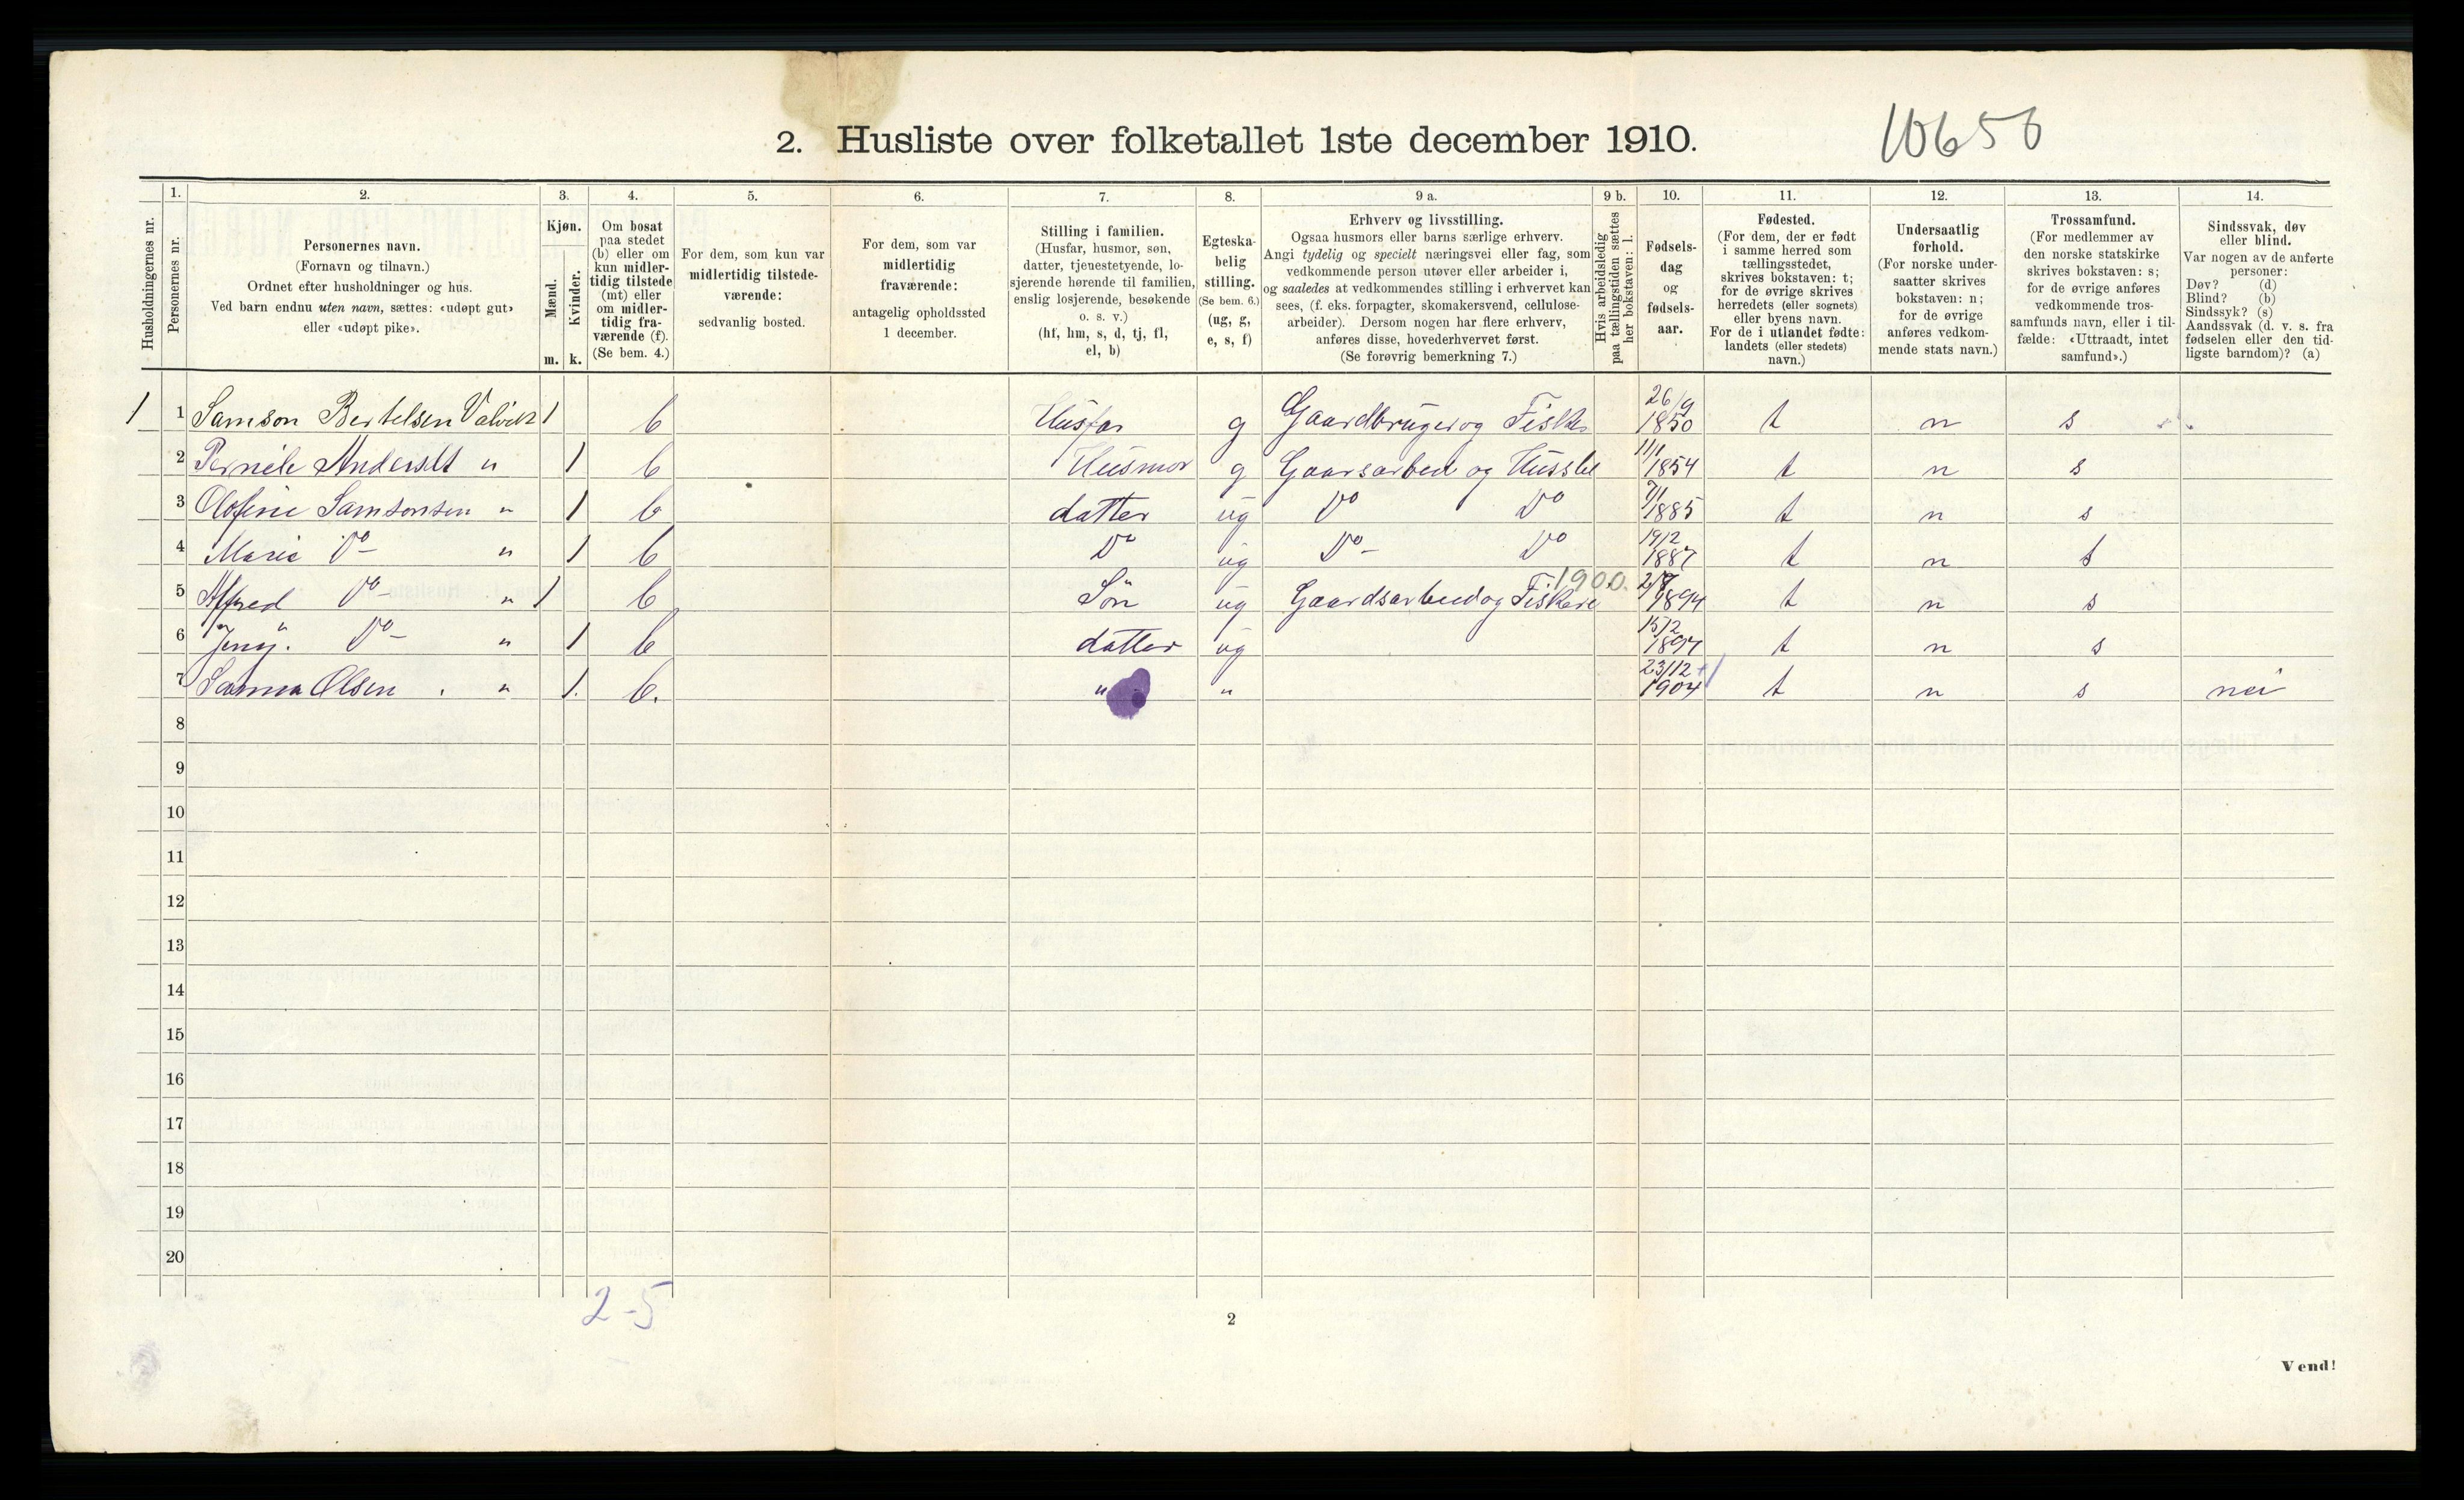 2. Husliste over folketallet 1ste december 1910.
10656
Husholdningernes nr.
1.
Personernes nr.
2.
Personernes navn.
(Fornavn og tilnavn.)
Ordnet efter husholdninger og hus.
Ved barn endnu uten navn, sættes: «udøpt gut»
eller «udøpt pike».
3.
Kjøn.
Mænd.
Kvinder.
m. k.
4.
Om bosat
paa stedet
(b) eller om
kun midler-
tidig tilstede
(mt) eller
om midler-
tidig fra-
værende (f).
(Se bem. 4.)
5.
For dem, som kun var
midlertidig tilstede-
værende:
sedvanlig bosted.
6.
For dem, som var
midlertidig
fraværende:
antagelig opholdssted
1 december.
7.
Stilling i familien.
(Husfar, husmor, søn,
datter, tjenestetyende, lo-
sjerende hørende til familien,
enslig losjerende, besøkende
o. s. v.)
(hf, hm, s, d, tj, fl,
el, b)
8.
Egteska-
belig
stilling.
(Se bem. 6.)
(ug, g,
e, s, f)
9 a.
Erhverv og livsstilling.
Ogsaa husmors eller barns særlige erhverv.
Angi tydelig og specielt næringsvei eller fag, som
vedkommende person utøver eller arbeider i,
og saaledes at vedkommendes stilling i erhvervet kan
sees, (f. eks. forpagter, skomakersvend, cellulose-
arbeider). Dersom nogen har flere erhverv,
anføres disse, hovederhvervet først.
(Se forøvrig bemerkning 7.)
9 b.
Hvis arbeidsledig
paa tællingstiden sættes
her bokstaven: l.
10.
Fødsels-
dag
og
fødsels-
aar.
11.
Fødested.
(For dem, der er født
i samme herred som
tællingsstedet,
skrives bokstaven: t;
for de øvrige skrives
herredets (eller sognets)
eller byens navn.
For de i utlandet fødte:
landets (eller stedets)
navn.)
12.
Undersaatlig
forhold.
(For norske under-
saatter skrives
bokstaven: n;
for de øvrige
anføres vedkom-
mende stats navn.)
13.
Trossamfund.
(For medlemmer av
den norske statskirke
skrives bokstaven: s;
for de øvrige anføres
vedkommende tros-
samfunds navn, eller i til-
fælde: «Uttraadt, intet
samfund».)
14.
Sindssvak, døv
eller blind.
Var nogen av de anførte
personer:
Døv? (d)
Blind? (b)
Sindssyk? (s)
Aandssvak (d. v. s. fra
fødselen eller den tid-
ligste barndom)? (a)
1 1 Samson Bertelsen Valvik 1 b Husfar g Gaardbruger og Fisker 26/9 1850 t n s
2 Pernele Andersdt " 1 b Husmor g Gaarsarbeid og Husstel 11/1 1854 t n s
3 Olofine Samsonsen " 1 b datter ug Do Do 7/1 1885 t n s
4 Marie Do - " 1 b Do ug Do - Do 19/2 1887 t n s
5 Alfred Do - " 1 b Sön ug Gaardsarbeid og Fiskeri 1900. 1894 t n s
6 Jeny. Do - " 1 b datter ug 15/2 1897 t n s
7 Sanna Olsen " 1. b. " " 23/12 1904 t n s nei
8
9
10
11
12
13
14
15
16
17
18
19
20
2-5
2
Vend!